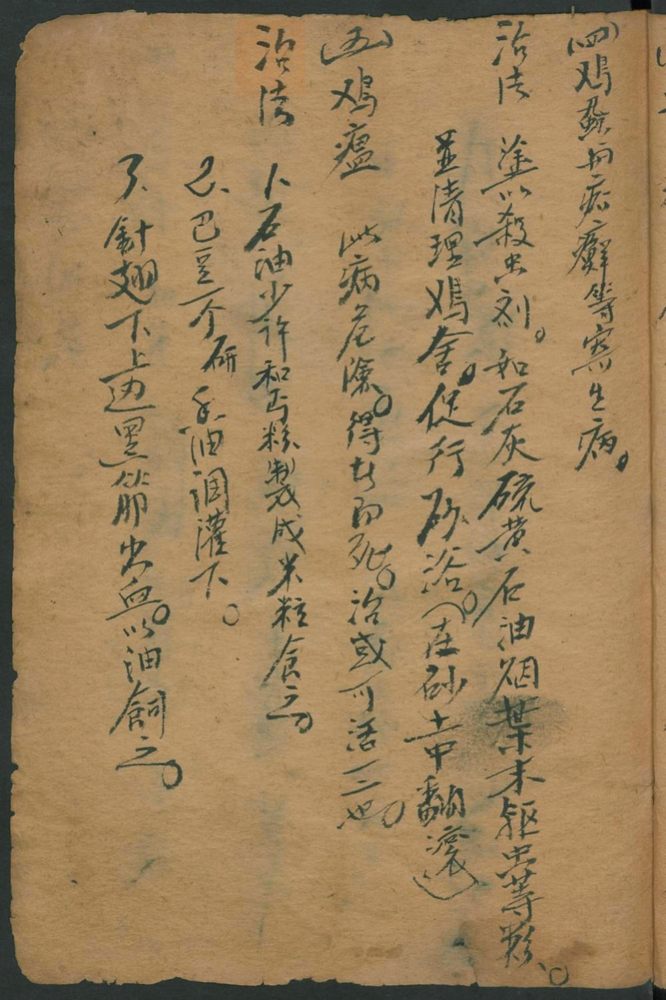 (四)鸡疥癬等寄生病。
治法 塗以殺虫剂。如石灰硫黄石油烟葉末駆虫等类。
並清理鸡舍。促行砂浴。(在砂土中翻滚)
(五)鸡瘟 此病危險。得者即死。治或可活一二也。
治法 1、石油少许和丐粉製成米粒食之。
2、巴豆一个研香油调灌下。
3、針翅下上边黑筋出血。以油飼之。